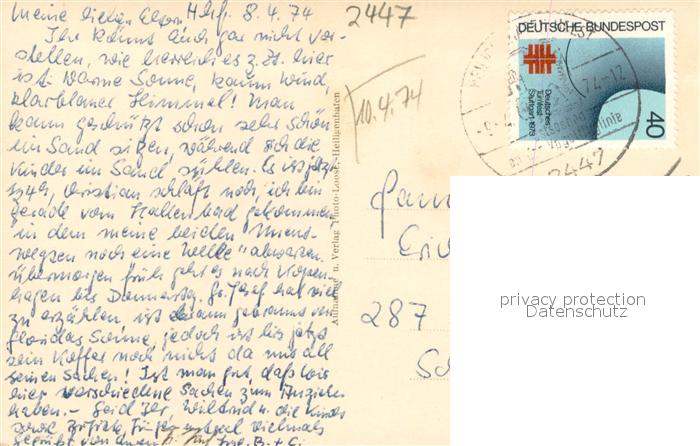 Meine lieben Eltern Hhf. 8.4.74
Ihr könnt Euch gar nicht vor-
stellen, wie herrlich es z.Zt. hier
ist: Warme Sonne, kaum Wind,
klarblauer Himmel! Man
kann geschützt schon sehr schön
im Sand sitzen, während sich die
Kinder im Sand wühlen. Es ist jetzt
Christian schläft noch, ich bin
gerade vom Hallenbad gekommen
in dem meine beiden
noch eine Welle" abwarten.
Übermorgen früh geht es nach Kopen-
hagen bis Donnerstag. Josef hat viel
zu erzählen, ist braun gebrannt von
Floridas Sonne, jedoch ist bis jetzt
sein Koffer noch nicht da mit all
seinen Sachen! Ist man gut, daß wir
hier verschiedene Sachen zum Anziehen
haben. - Seid Ihr, Wiltrud u. die Kinder
vielmals
gegrüßt von
2447
10.4.74
Aufnahme u. Verlag Photo-Loose, Heiligenhafen
DEUTSCHE BUNDESPOST
Deutsches
Turnfest
Stuttgart 1973
40
74-12
2447
287
privacy protection
Datenschutz